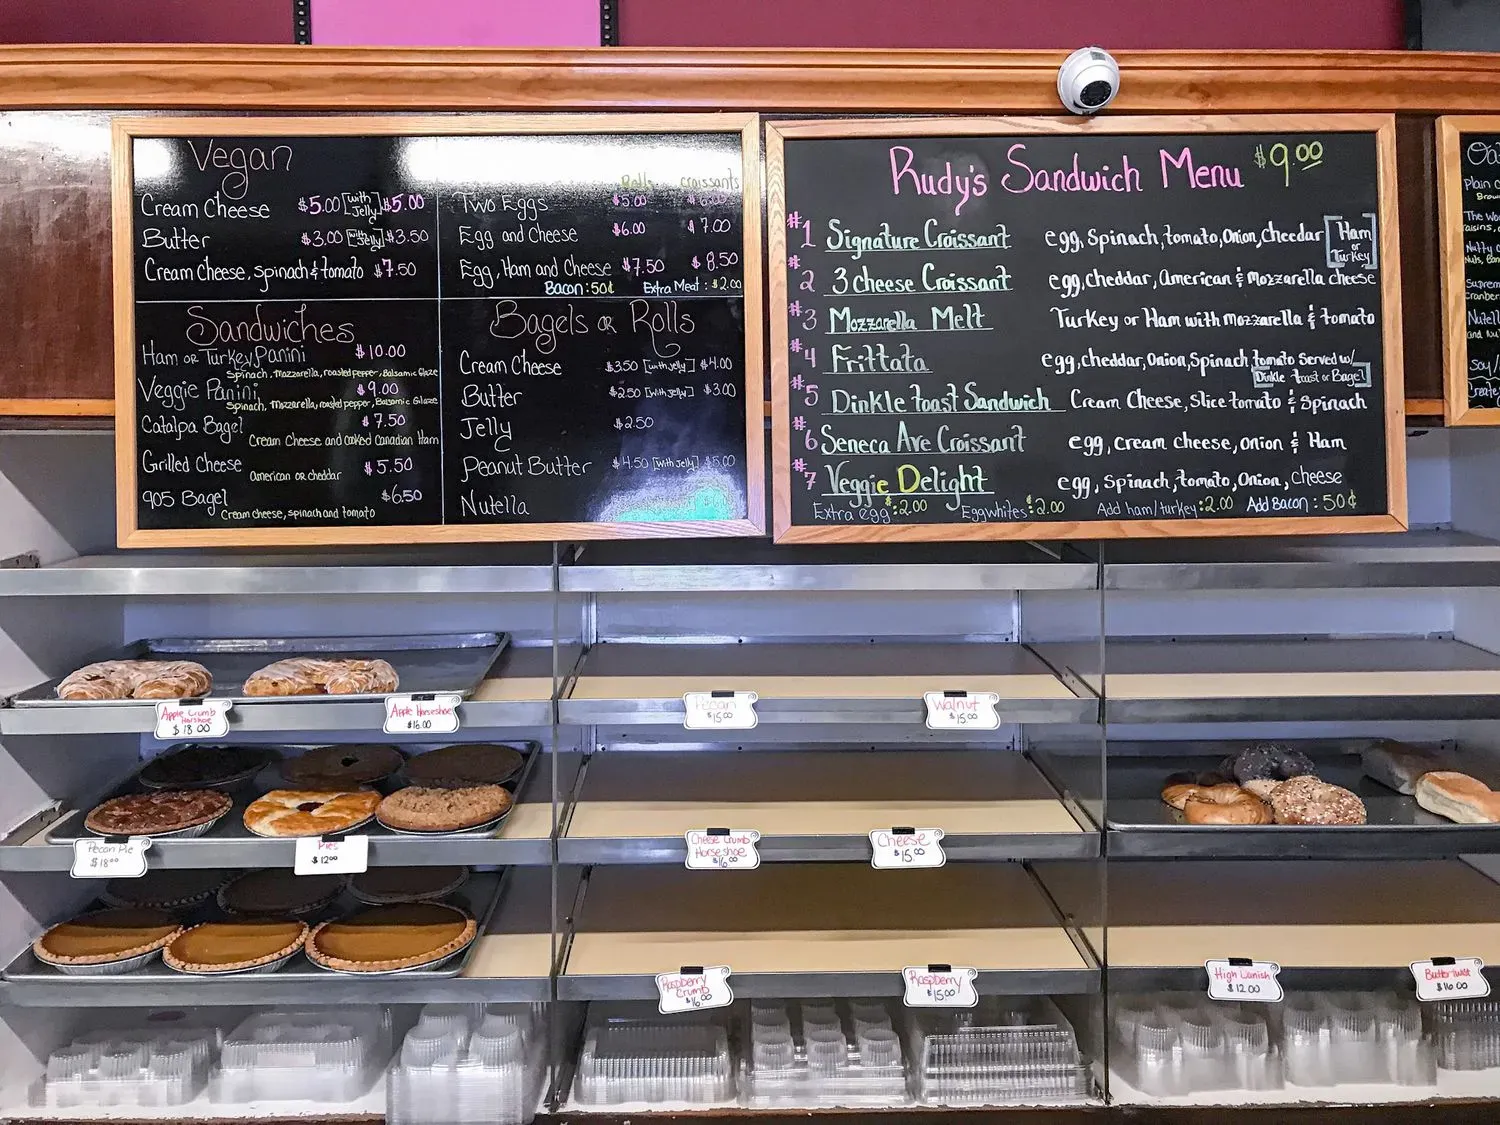 Vegan
Cream Cheese $5.00 [with Jelly] $5.00
Butter $3.00 [with Jelly] $3.50
Cream Cheese, Spinach & tomato $7.50
Rolls croissants
Two Eggs $5.00
Egg and Cheese $6.00 $7.00
Egg, Ham and Cheese $7.50 $8.50
Bacon: 50¢ Extra Meat: $2.00
Sandwiches
Ham or Turkey Panini $10.00
Spinach, Mozzarella, roasted pepper, Balsamic Glaze
Veggie Panini $9.00
Spinach, Mozzarella, roasted pepper, Balsamic Glaze
Catalpa Bagel $7.50
Cream Cheese and cooked Canadian Ham
Grilled Cheese $5.50
American or cheddar
905 Bagel $6.50
Cream cheese, spinach and tomato
Bagels or Rolls
Cream Cheese $3.50 [with jelly] $4.00
Butter $2.50 [with jelly] $3.00
Jelly $2.50
Peanut Butter $4.50 [with jelly] $5.00
Nutella
Rudy's Sandwich Menu $9.00
#1 Signature Croissant egg, Spinach, tomato, Onion, cheedar [Ham or Turkey]
#2 3 cheese Croissant egg, cheddar, American & Mozzarella cheese
#3 Mozzarella Melt Turkey or Ham with mozzarella & tomato
#4 Frittata egg, cheddar, Onion, Spinach tomato Served w/
[Dinkle toast or Bagel]
#5 Dinkle toast Sandwich Cream Cheese, Slice tomato & Spinach
#6 Seneca Ave Croissant egg, cream cheese, onion & Ham
#7 Veggie Delight egg, Spinach, tomato, Onion, cheese
Extra egg: $2.00 Eggwhites: $2.00 Add ham/turkey: 2.00 Add Bacon: 50¢
Plain
Nutell
Apple Crumb Horshoe
$18.00
Apple Horseshoe
$16.00
Pecan
$15.00
Walnut
$15.00
Pecan Pie
$18.00
Pies
$12.00
Cheese Crumb
Horseshoe
$16.00
Cheese
$15.00
Raspberry
Crumb
$16.00
Raspberry
$15.00
High Danish
$12.00
Buttertwist
$16.00